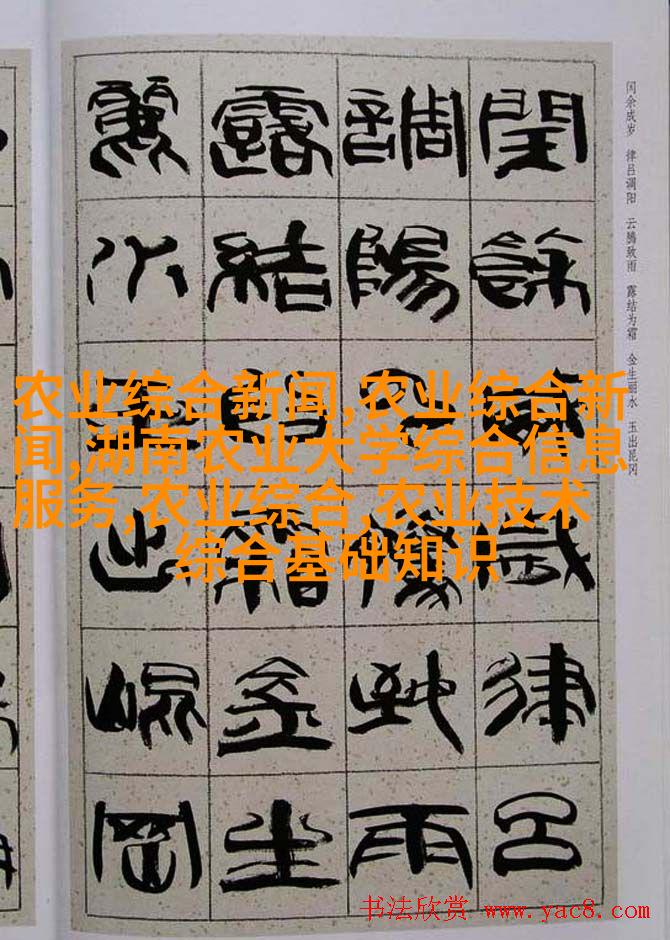 闰余成岁 律吕调阳 云腾致雨 露结为霜 金生丽水 玉出昆冈
閏餘成歲律呂
調陽雲騰致雨
露結為霜金生
麗水玉出崐岡
农业综合新闻,农业综合新
闻,湖南农业大学综合信息
服务,农业综合,农业技术
综合基础知识
书法欣赏 www.yac8.com